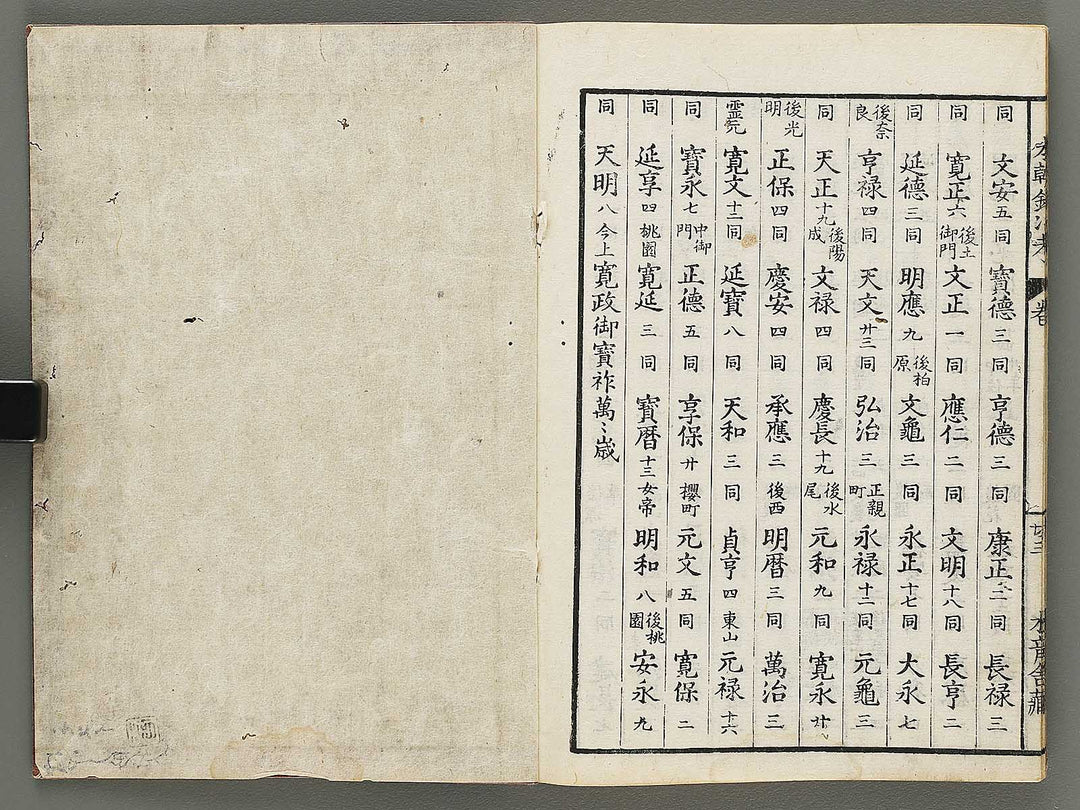 同 文安 五 同 寶德 三 同 亨德 三 同 康正 二 同 長禄 三
同 寛正 六 後土御門 文正 一 同 應仁 二 同 文明 十八 同 長亨 二
同 延德 三 同 明應 九 後柏原 文龜 三 同 永正 十七 同 大永 七
後奈良 亨禄 四 同 天文 廿三 同 弘治 三 正親町 永禄 十二 同 元龜 三
同 天正 十九 後陽成 文禄 四 同 慶長 十九 後水尾 元和 九 同 寛永 廿
後光明 正保 四 同 慶安 四 同 承應 三 後西 明暦 三 同 萬治 三
靈元 寛文 十二 同 延寶 八 同 天和 三 同 貞亨 四 東山 元禄 十六
同 寶永 七 中御門 正德 五 同 享保 廿 櫻町 元文 五 同 寛保 二
同 延享 四 桃園 寛延 三 同 寶暦 十三 女帝 明和 八 後桃園 安永 九
同 天明 八 今上 寛政 御寶祚萬〻歳